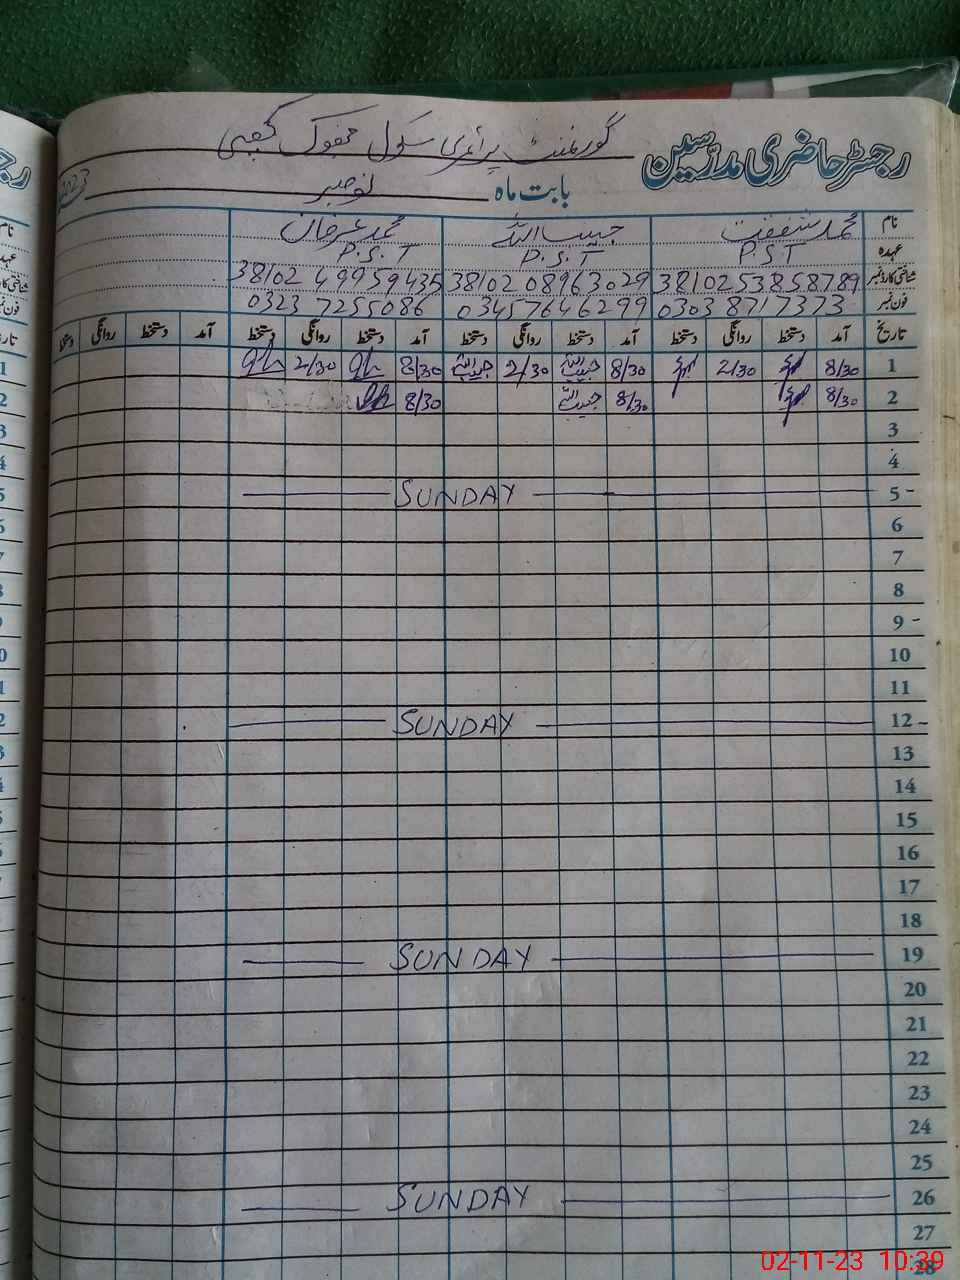 رجسٹر حاضری مدرسین گورنمنٹ پرائمری سکول
بابت ماہ نومبر 2023
نام محمد شفقت حبیب اللہ محمد عرفان
عہدہ P.S.T P.S.T P.S.T
شناختی کارڈ نمبر 3810253858789 3810208963029 3810249959435
فون نمبر 03038717373 03457646299 03237255086
تاریخ آمد دستخط روانگی دستخط آمد دستخط روانگی دستخط آمد دستخط روانگی دستخط آمد دستخط روانگی دستخط
1 8/30 2/30 8/30 حبیب اللہ 2/30 حبیب اللہ 8/30 2/30
2 8/30 8/30 حبیب اللہ 8/30
3
4
5 - SUNDAY
6
7
8
9 -
10
11
12 - SUNDAY
13
14
15
16
17
18
19 SUNDAY
20
21
22
23
24
25
26 SUNDAY
27
28
02-11-23 10:39